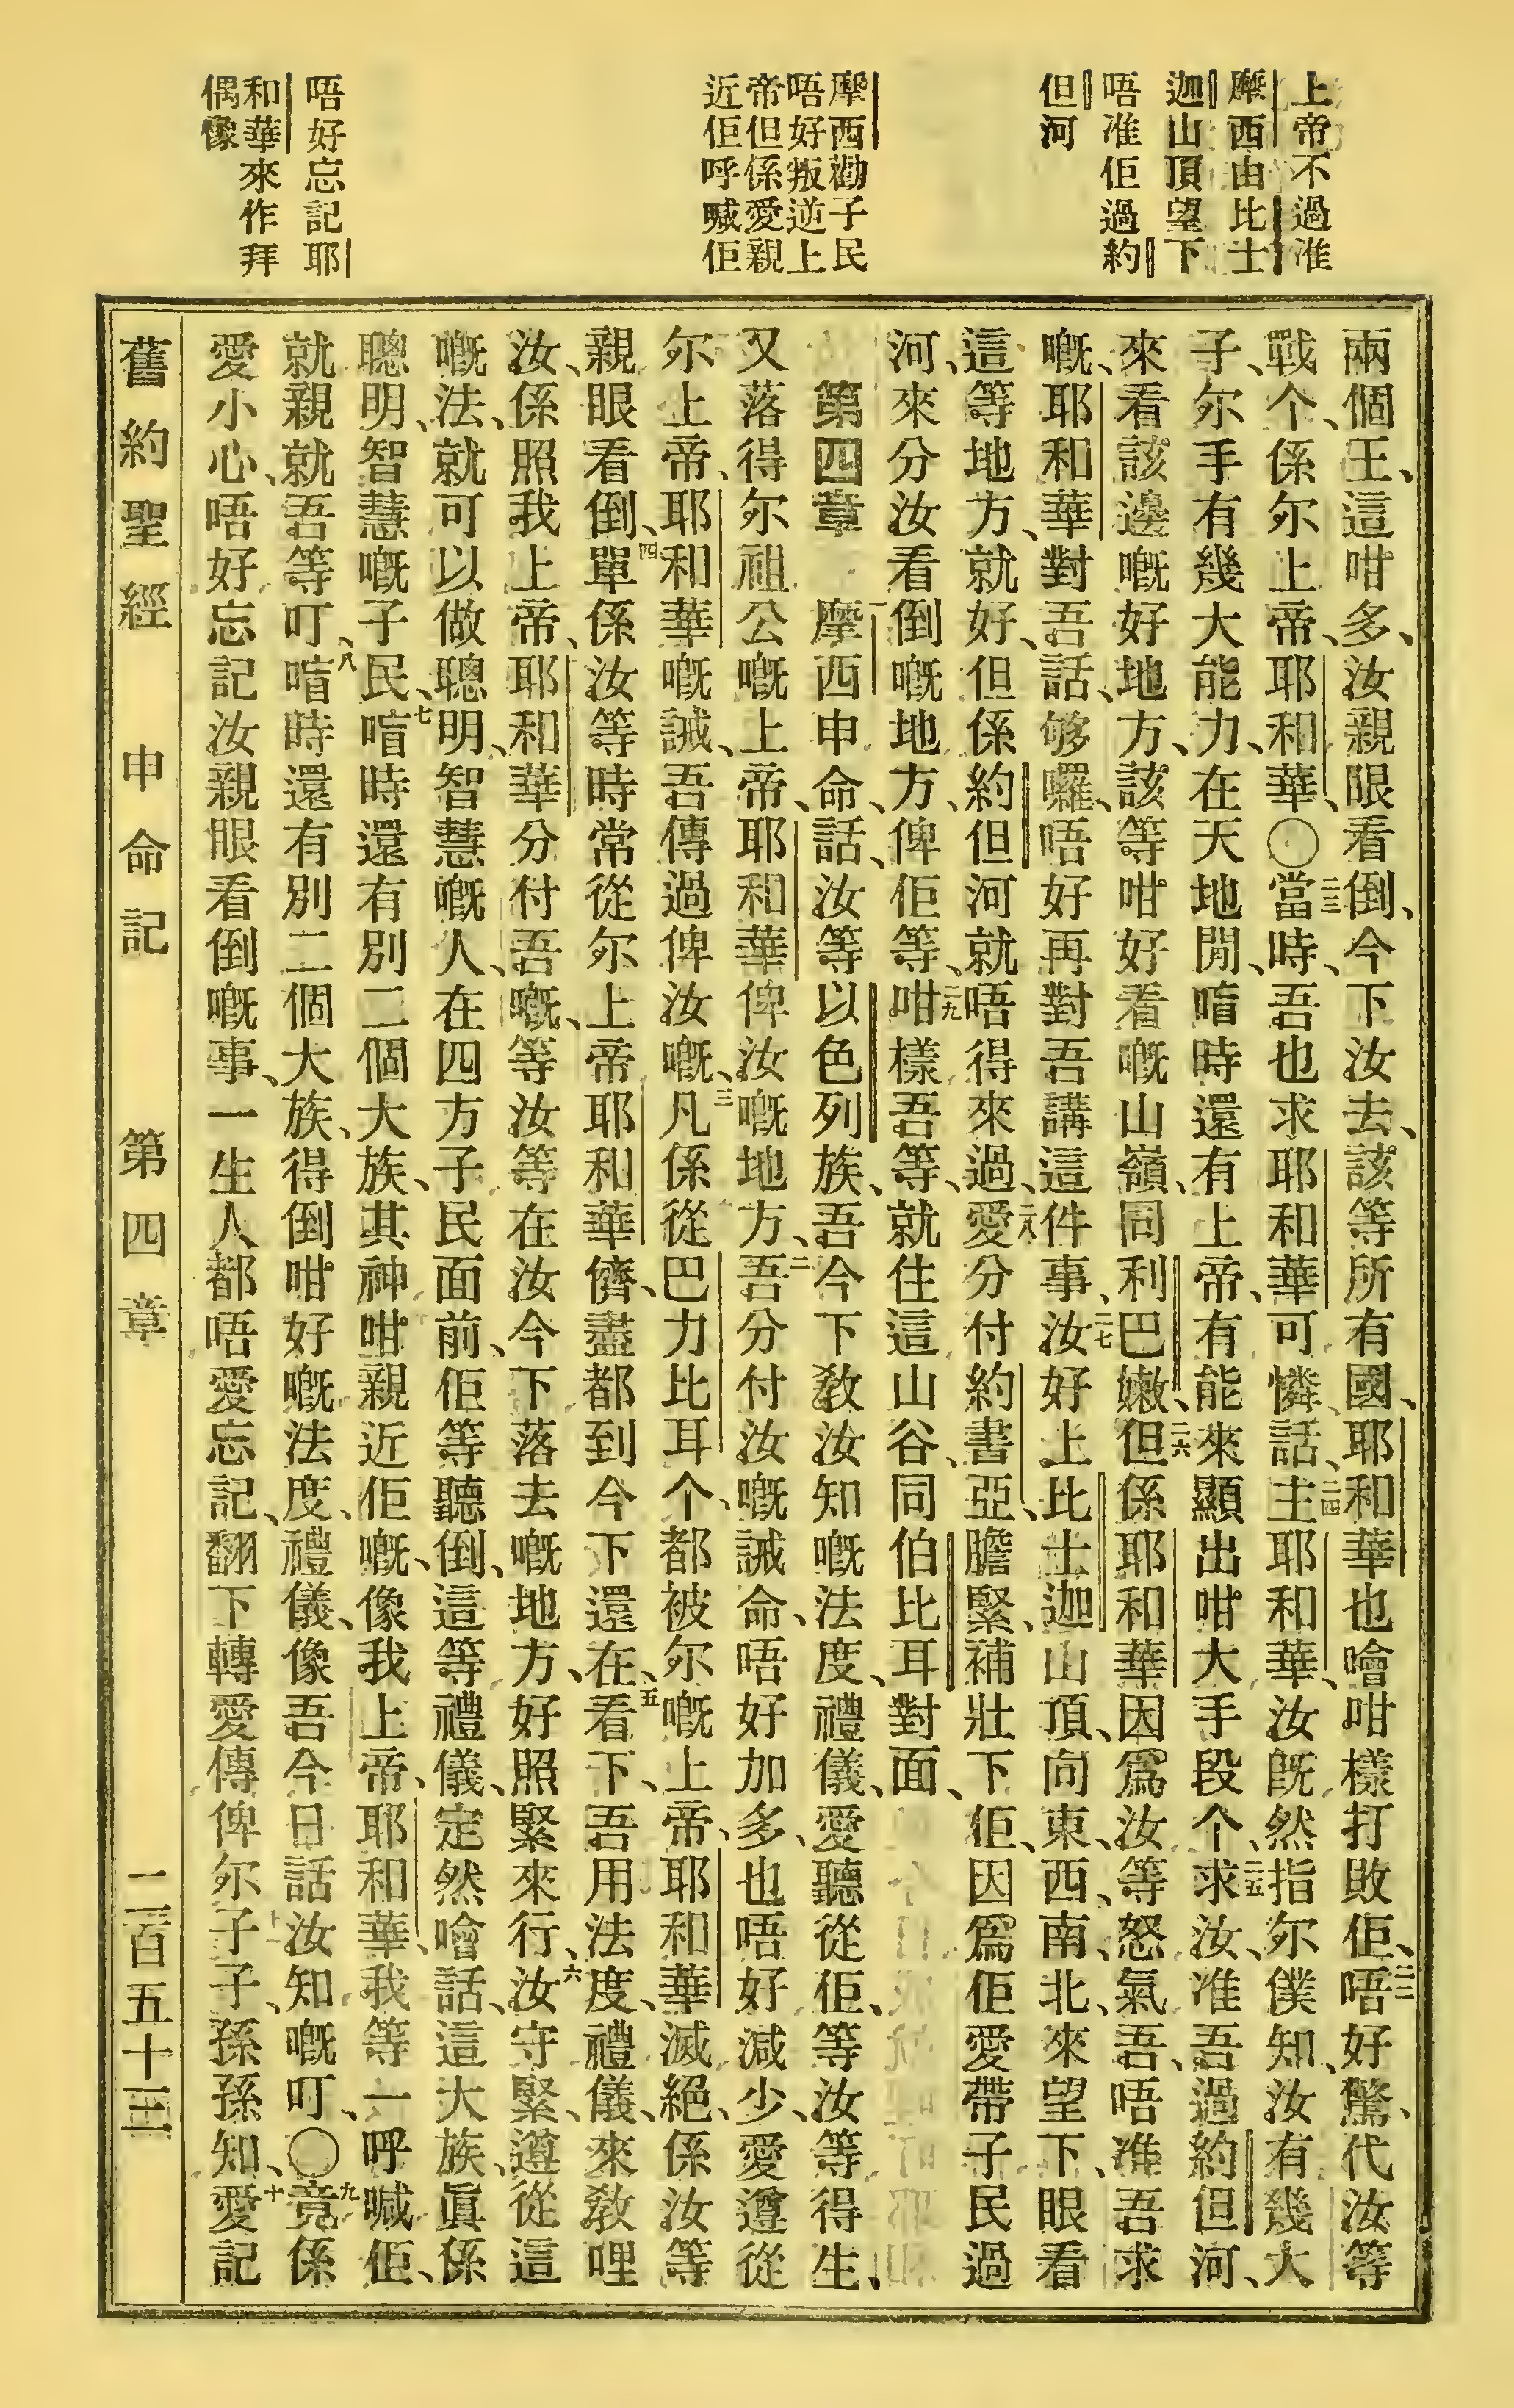 上帝不過准
摩西由比士
迦山頂望下
唔准佢過約
但河
摩西勸子民
唔好叛逆上
帝但係愛親
近佢呼喊佢
唔好忘記耶
和華來作拜
偶像
兩個王、這咁多、汝親眼看倒、今下汝去、該等所有國、耶和華也噲咁樣打敗佢、二二唔好驚、代汝等
戰个、係尔上帝、耶和華、〇二三當時、吾也求耶和華可憐、話、二四主耶和華、汝旣然指尔僕知、汝有幾大
子、尔手有幾大能力、在天地間、唷時還有上帝、有能來顯出咁大手段个、二五求汝、准吾過約但河、
來看該邊嘅好地方、該等咁好看嘅山嶺、同利巴嫩、二六但係耶和華因爲汝等怒氣吾、唔准吾求
嘅、耶和華對吾話、够囉、唔好再對吾講這件事、二七汝好上比士迦山頂、向東、西、南、北、來望下、眼看
這等地方、就好、但係約但河就唔得來過、二八愛分付約書亞、膽緊、補壯下佢、因爲佢愛帶子民過
河、來分汝看倒嘅地方、俾佢等、二九咁樣吾等、就住這山谷、同伯比耳對面、
第四章 摩西申命、話、汝等以色列族、吾今下敎汝知嘅法度、禮儀、愛聽從佢、等汝等得生、
又落得尔祖公嘅上帝、耶和華俾汝嘅地方、二吾分付汝嘅誡命、唔好加多、也唔好減少、愛遵從
尔上帝、耶和華嘅誡、吾傳過俾汝嘅、三凡係從巴力比耳个、都被尔嘅上帝、耶和華滅絕、係汝等
親眼看倒、四單係汝等時常從尔上帝耶和華儕、盡都到今下還在、五看下、吾用法度、禮儀、來敎哩
汝、係照我上帝、耶和華分付吾嘅、等汝等在汝今下落去嘅地方、好照緊來行、六汝守緊、遵從這
嘅法、就可以做聰明、智慧嘅人、在四方子民面前、佢等聽倒、這等禮儀、定然噲話、這大族、眞係
聰明、智慧嘅子民、七唷時還有別二個大族、其神咁親近佢嘅、像我上帝、耶和華、我等一呼喊佢、
就親就吾等叮、八唷時還有別二個大族、得倒咁好嘅法度、禮儀、像吾今日話汝知嘅叮、〇九竟係
愛小心、唔好忘記汝親眼看倒嘅事、一生人都唔愛忘記、翻下轉愛傳俾尔子子、孫孫知、十愛記
舊約聖經 申命記 第四章 二百五十三